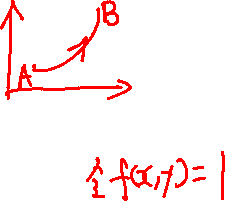 B
A
令f(x,y)=1